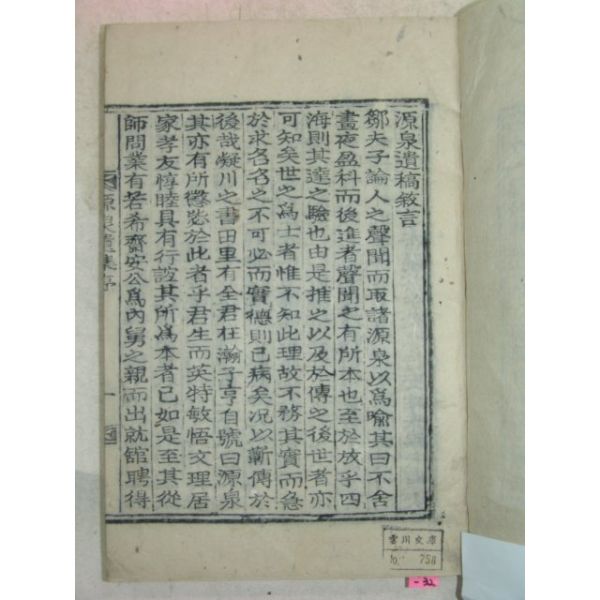 源泉遺稿敘言
鄒夫子論人之聲聞而取諸源泉以爲喩其曰不舍
晝夜盈科而後進者聲聞之有所本也至於放乎四
海則其達之驗也由是推之以及於傳之後世者亦
可知矣世之爲士者惟不知此理故不務其實而急
於求名名之不可必而實德則已病矣况以蘄傳於
後哉凝川之書田里有全君在瀚子亨自號曰源泉
其亦有所懲毖於此者乎君生而英特敏悟文理居
家孝友惇睦具有行誼其所爲本者已如是至其從
師問業有若希齋安公爲內舅之親而出就舘聘得
源泉遺集序
一
雪川文庫
No. 758
-32